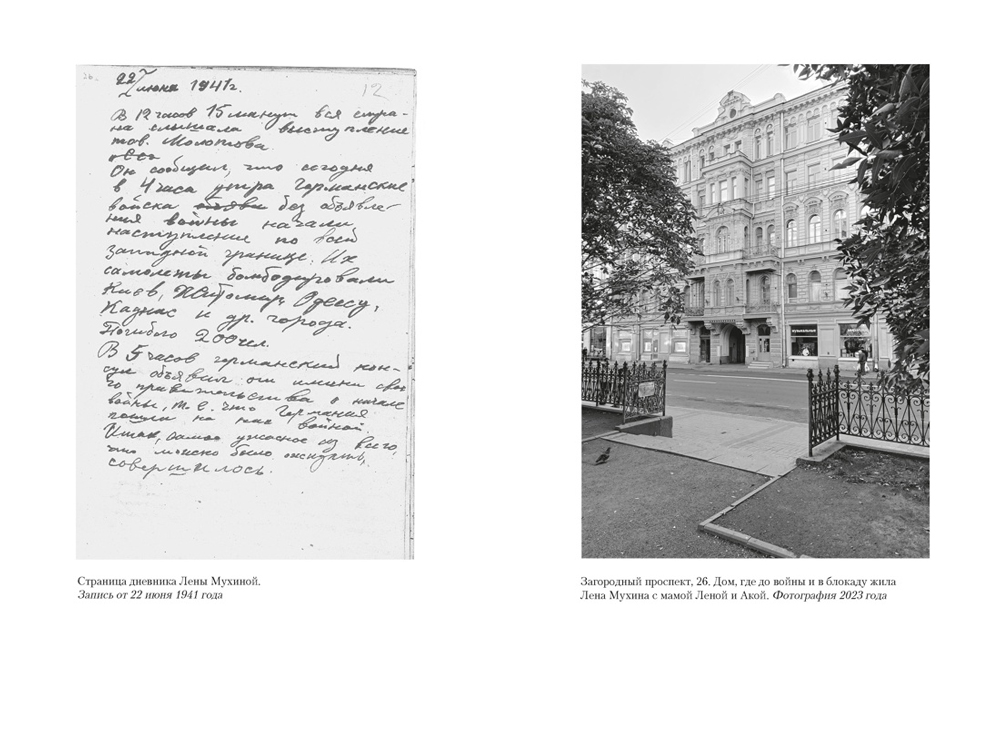 26.
22 июня 1941 г.
12
В 12 часов 15 минут вся стра-
на слышала выступление
тов. Молотова.
Он сообщил, что сегодня
в 4 часа утра германские
войска объяви без объявле-
ния войны начали
наступление по всей
западной границе. Их
самолеты бомбодировали
Киев, Житомир, Одессу,
Каунас и др. города.
Погибло 200 чел.
В 5 часов германский кон-
сул объявил от имени свое-
го правительства о начале
войны, т. е. что Германия
пошла на нас войной.
Итак, самое ужасное из всего,
что можно было ожидать,
совершилось.
Страница дневника Лены Мухиной.
Запись от 22 июня 1941 года
Загородный проспект, 26. Дом, где до войны и в блокаду жила
Лена Мухина с мамой Леной и Акой. Фотография 2023 года